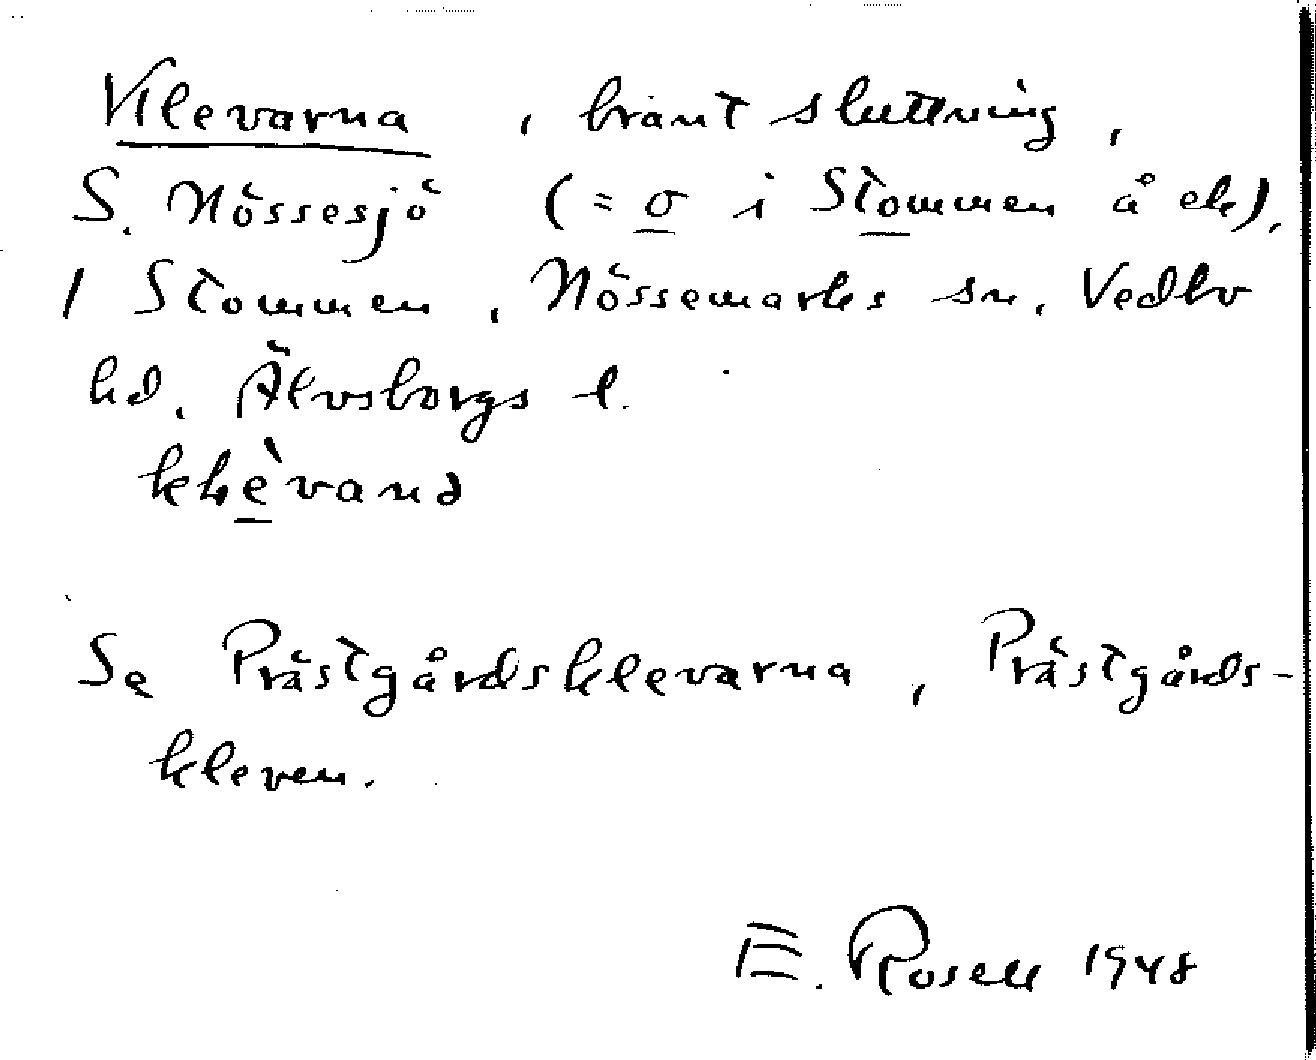 Klevarna, brant sluttning,
S. Nössesjö (= σ i Stommen å ek),
1 Stommen, Nössemarks sn, Vedbo
hd, Älvsborgs l.
klèvaнə
Se Prästgårdsklevarna, Prästgårds-
kleven.
E. Rosell 1948